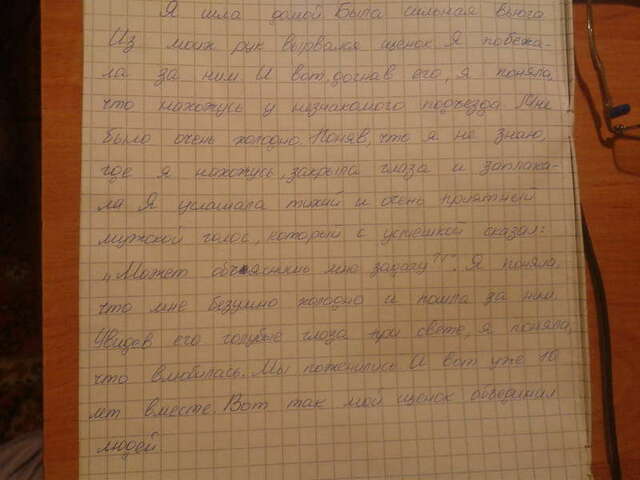 Я шла домой. Была сильная вьюга
Из моих рук вырвался щенок. Я побежа-
ла за ним. И вот, догнав его, я поняла,
что нахожусь у незнакомого подъезда. Мне
было очень холодно. Поняв, что я не знаю,
где я нахожусь, закрыла глаза и заплака-
ла. Я услышала тихий и очень приятный
мужской голос, который с усмешкой сказал:
„Может объяснишь мне задачу?". Я поняла,
что мне безумно холодно и пошла за ним.
Увидев его голубые глаза при свете, я поняла,
что влюбилась. Мы поженились. И вот уже 10
лет вместе. Вот так мой щенок объединил
людей